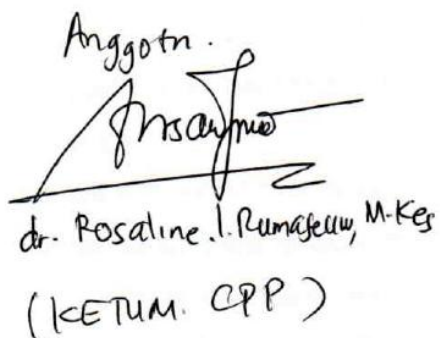 Anggotn.
dr. Rosaline .I. Rumaseuw, M.Kes
(KETUM. CPP)